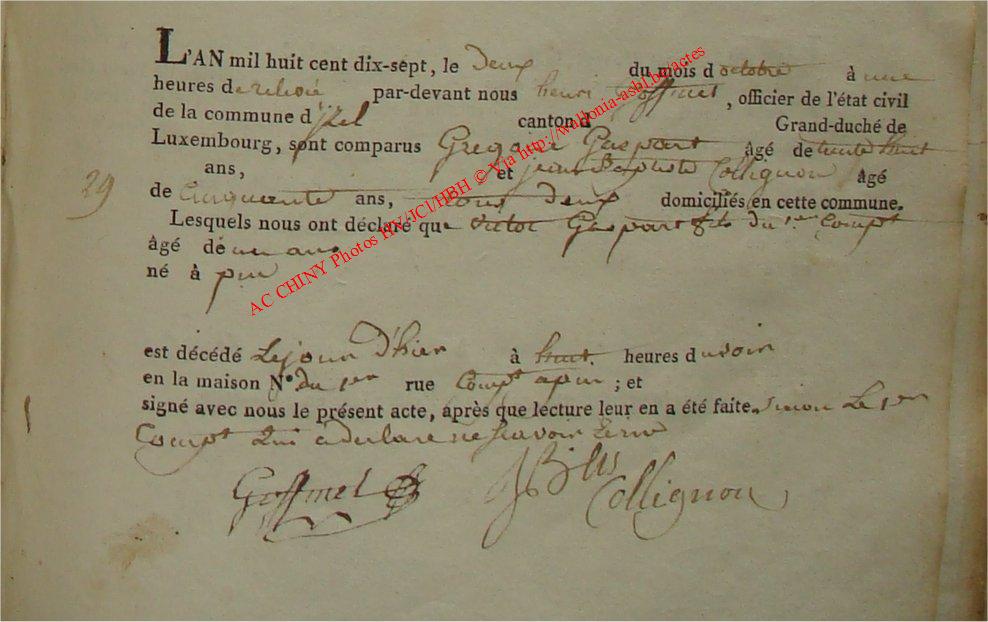 L'AN mil huit cent dix-sept, le Deux du mois d octobre à une
heures de relevée par-devant nous henri Goffinet, officier de l'état civil
de la commune d'izel canton d Grand-duché de
Luxembourg, sont comparus Gregoire Gaspart âgé de trente huit
ans, et jean Baptiste Collignon âgé
29
de Cinquante ans, tous deux domiciliés en cette commune.
Lesquels nous ont déclaré que victor Gaspart fils du 1er Compt
âgé de un ans
né à pin
est décédé Le jour D'hier à huit heures du soir
en la maison N° du 1er rue Compt a pin ; et
signé avec nous le présent acte, après que lecture leur en a été faite. sinon Le 1er
Compt Qui a declaré ne scavoir Ecrire
Goffinet JB
Collignon
AC CHINY Photos HV/JCl/HBH © Via http://wallonia-asbl.be/actes